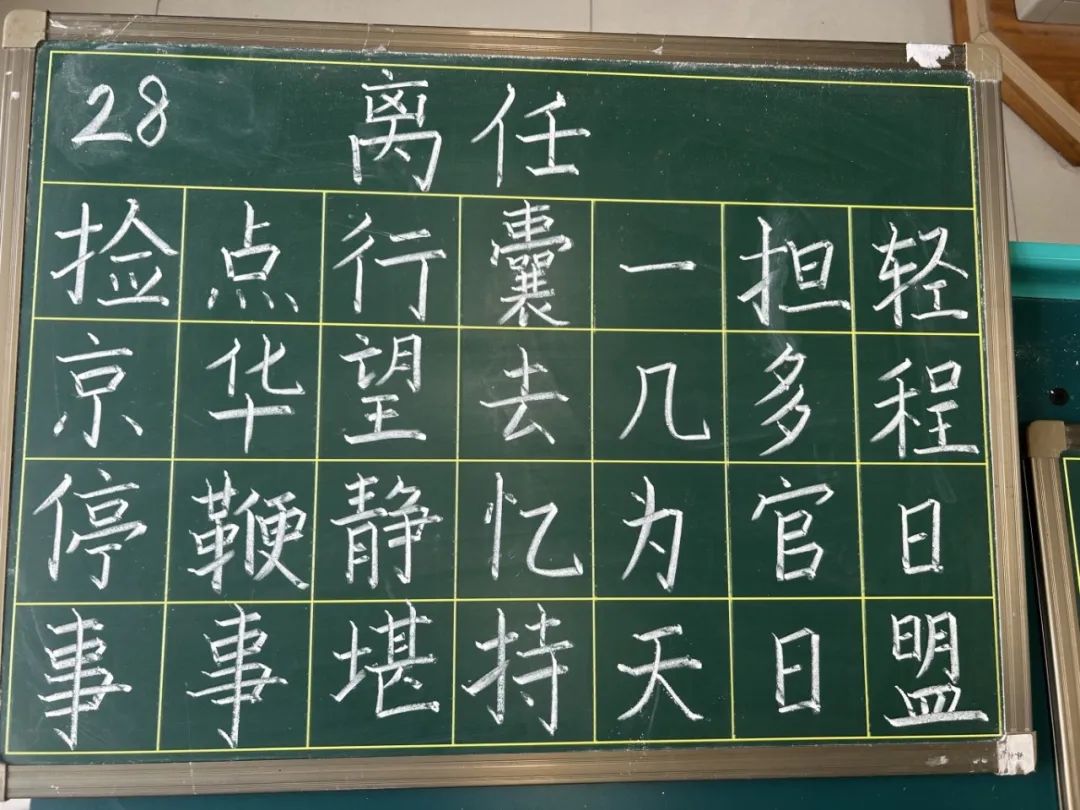 28 离任
捡点行囊一担轻
京华望去几多程
停鞭静忆为官日
事事堪持天日盟